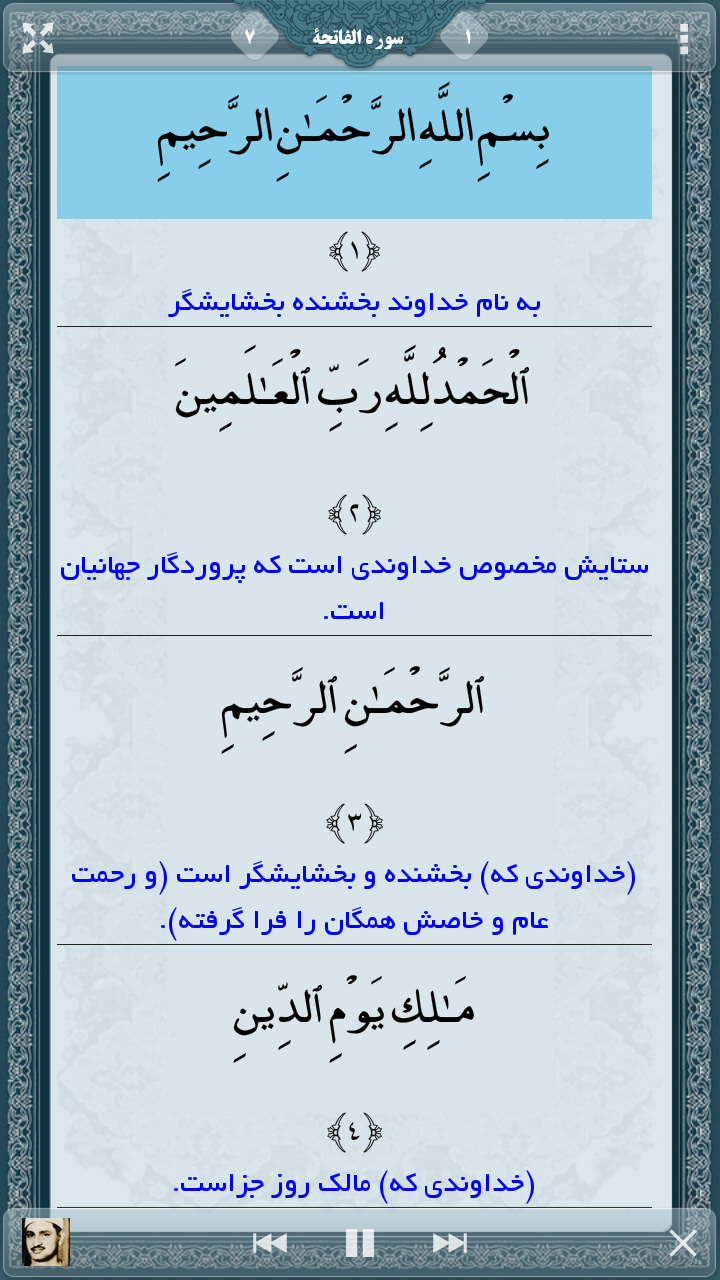 ۱ سوره الفاتحة ۷
بِسْمِ اللَّهِ الرَّحْمَـٰنِ الرَّحِيمِ
﴿١﴾
به نام خداوند بخشنده بخشایشگر
ٱلْحَمْدُ لِلَّهِ رَبِّ ٱلْعَـٰلَمِينَ
﴿٢﴾
ستایش مخصوص خداوندی است که پروردگار جهانیان
است.
ٱلرَّحْمَـٰنِ ٱلرَّحِيمِ
﴿٣﴾
(خداوندی که) بخشنده و بخشایشگر است (و رحمت
عام و خاصش همگان را فرا گرفته).
مَـٰلِكِ يَوْمِ ٱلدِّينِ
﴿٤﴾
(خداوندی که) مالک روز جزاست.